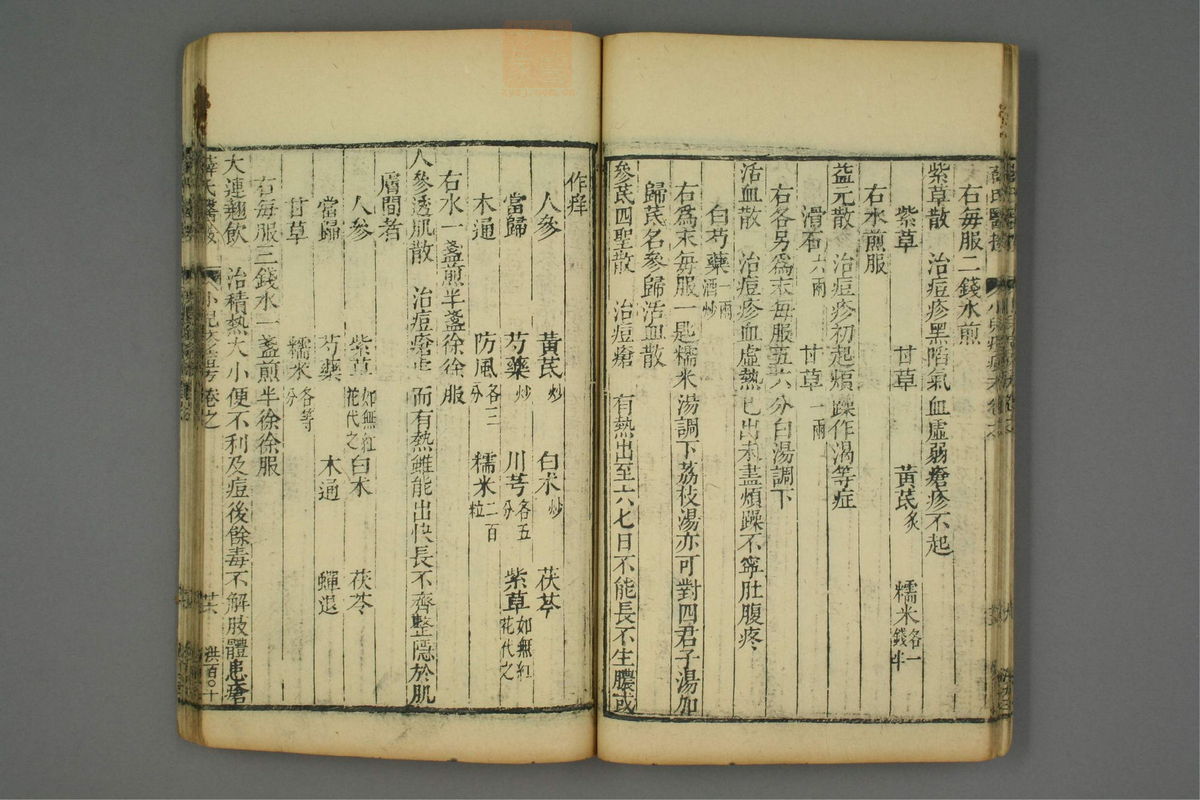 右每服二錢水煎
紫草散　治痘疹黑陷氣血虛弱瘡疹不起
紫草　甘草　黃芪炙　糯米各一錢半
右水煎服
益元散　治痘疹初起煩躁作渴等症
滑石六兩　甘草一兩
右各另爲末每服五六分白湯調下
活血散　治痘疹血虛熱已出未盡煩躁不寧肚腹疼
白芍藥一兩酒炒
右爲末每服一匙糯米湯調下荔枝湯亦可對四君子湯加
歸芪名參歸活血散
參芪四聖散　治痘瘡　有熱出至六七日不能長不生膿或
作痒
人參　黃芪炒　白朮炒　茯苓
當歸　芍藥炒　川芎各五分　紫草如無紅花代之
木通　防風各三分　糯米二百粒
右水一盞煎半盞徐徐服
人參透肌散　治痘瘡　而有熱雖能出快長不齊整隱於肌
膚間者
人參　紫草如無紅花代之　白朮　茯苓
當歸　芍藥　木通　蟬退
甘草　糯米各等分
右每服三錢水一盞煎半徐徐服
大連翹飲　治積熱大小便不利及痘後餘毒不解肢體患瘡
薛氏醫按